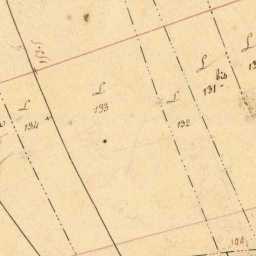 L
133
L
134
L
132
L
131 bis
L
13